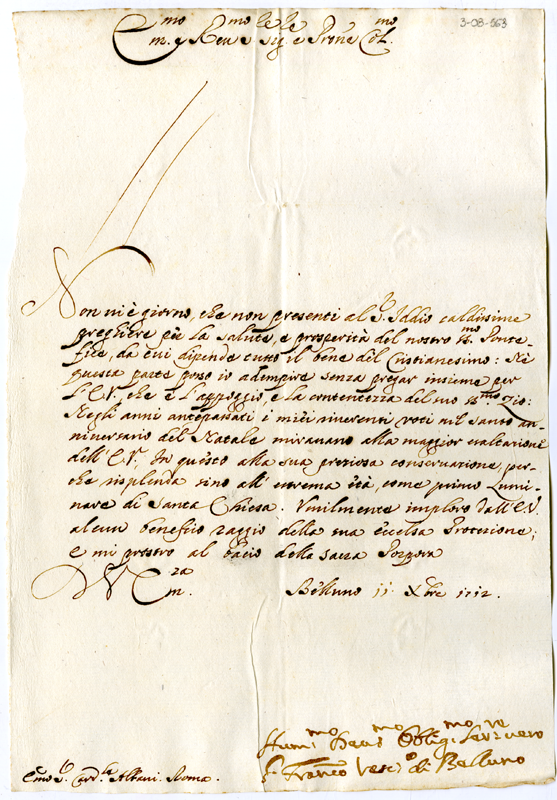 3-08-563
Em.mo e Reu.mo Sig.re e Pron.e Col.mo
Non ui è giorno, che non presenti al S.r Iddio caldissime
preghiere per la salute, e prosperità del nostro SS.mo Ponte-
fice, da cui dipende tutto il bene del Cristianesimo: Nè
questa parte posso io adempire senza pregar insieme per
l'E.V., che è l'appoggio, e la contentezza del suo SS.mo Zio:
Negli anni antepassati i miei riuerenti voti nel santo an-
niuersario del Natale mirauano alla maggior esaltazione
dell'E.V. In questo alla sua preziosa conseruazione, per-
che risplenda sino all'estrema età, come primo Lumi-
nare di Santa Chiesa. Vmilmente imploro dall'E.V.
alcun benefico raggio della sua eccelsa Protezione;
e mi prostro al bacio della sacra Porpora
V. Em.za
Belluno 11. Xbre 1712.
Hum.mo Deuo.mo Oblig.mo Ser.re uero
Franc.o Vesc.o di Belluno
Emo S.r Card.le Albani. Roma.